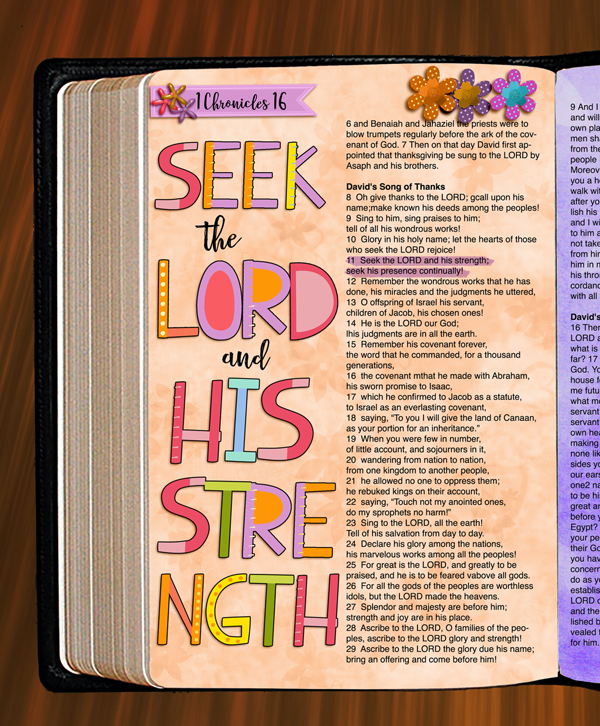 1 Chronicles 16
SEEK
the
LORD
and
HIS
STRE
NGTH
6 and Benaiah and Jahaziel the priests were to
blow trumpets regularly before the ark of the cov-
enant of God. 7 Then on that day David first ap-
pointed that thanksgiving be sung to the LORD by
Asaph and his brothers.
David's Song of Thanks
8 Oh give thanks to the LORD; gcall upon his
name;make known his deeds among the peoples!
9 Sing to him, sing praises to him;
tell of all his wondrous works!
10 Glory in his holy name; let the hearts of those
who seek the LORD rejoice!
11 Seek the LORD and his strength;
seek his presence continually!
12 Remember the wondrous works that he has
done, his miracles and the judgments he uttered,
13 O offspring of Israel his servant,
children of Jacob, his chosen ones!
14 He is the LORD our God;
lhis judgments are in all the earth.
15 Remember his covenant forever,
the word that he commanded, for a thousand
generations,
16 the covenant mthat he made with Abraham,
his sworn promise to Isaac,
17 which he confirmed to Jacob as a statute,
to Israel as an everlasting covenant,
18 saying, “To you I will give the land of Canaan,
as your portion for an inheritance.”
19 When you were few in number,
of little account, and sojourners in it,
20 wandering from nation to nation,
from one kingdom to another people,
21 he allowed no one to oppress them;
he rebuked kings on their account,
22 saying, “Touch not my anointed ones,
do my sprophets no harm!”
23 Sing to the LORD, all the earth!
Tell of his salvation from day to day.
24 Declare his glory among the nations,
his marvelous works among all the peoples!
25 For great is the LORD, and greatly to be
praised, and he is to be feared vabove all gods.
26 For all the gods of the peoples are worthless
idols, but the LORD made the heavens.
27 Splendor and majesty are before him;
strength and joy are in his place.
28 Ascribe to the LORD, O families of the peo-
ples, ascribe to the LORD glory and strength!
29 Ascribe to the LORD the glory due his name;
bring an offering and come before him!
9 And I
and will
own pla
men sha
from the
people
Moreov
you a ho
walk wit
after yo
lish his
and I wi
to him a
not take
from him
him in m
his thro
cordanc
with all
David's
16 Then
LORD a
what is
far? 17
God. Yo
house fo
me futu
what mo
servant
servant
own hea
making
none lik
sides yo
our ears
one2 na
to be his
great an
before y
Egypt?
your pe
their Go
you hav
concern
do as yo
establis
LORD o
and the
lished b
vealed t
for him.